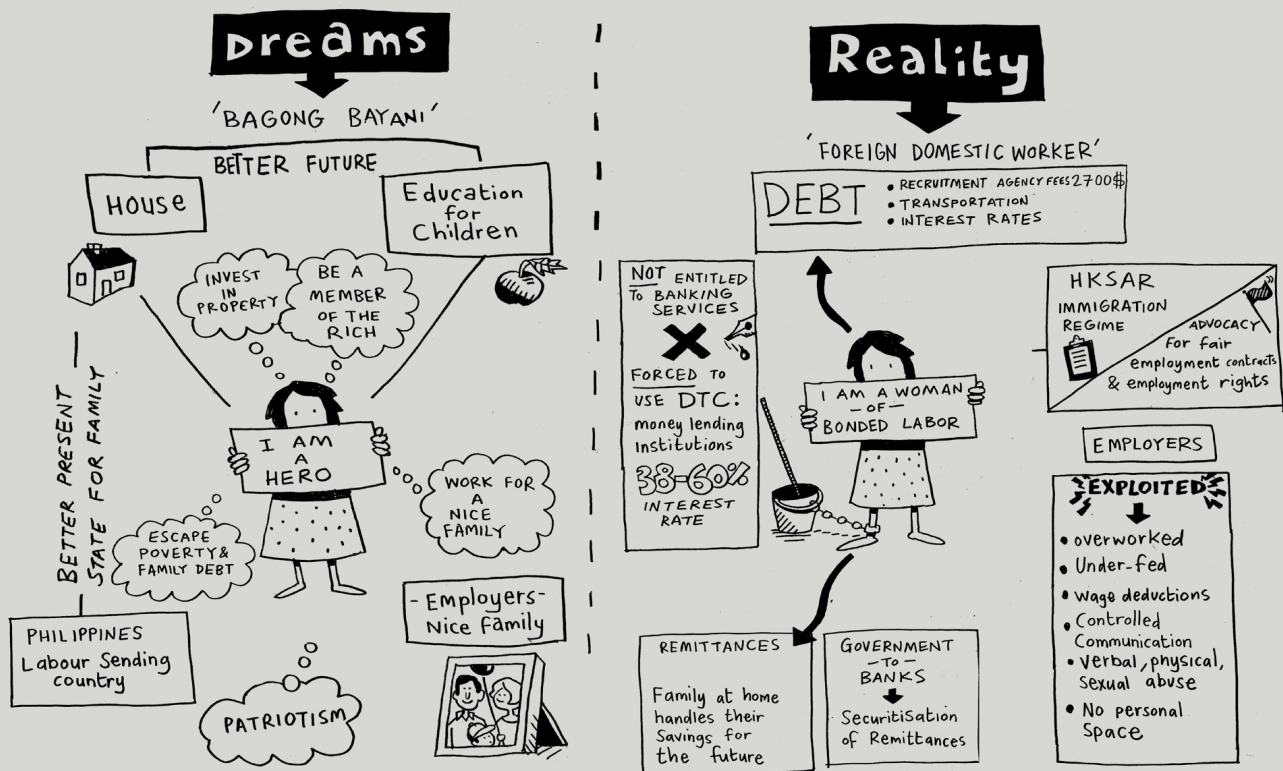 Dreams
'BAGONG BAYANI'
BETTER FUTURE
HOUSE
Education
for
Children
INVEST
IN
PROPERTY
BE A
MEMBER
OF THE
RICH
I AM
A
HERO
WORK FOR
A
NICE
FAMILY
ESCAPE
POVERTY &
FAMILY DEBT
BETTER PRESENT
STATE FOR FAMILY
PHILIPPINES
Labour Sending
country
PATRIOTISM
- Employers -
Nice family
Reality
'FOREIGN DOMESTIC WORKER'
DEBT
• RECRUITMENT AGENCY FEES 2700$
• TRANSPORTATION
• INTEREST RATES
NOT ENTITLED
TO BANKING
SERVICES
FORCED TO
USE DTC:
money lending
Institutions
38-60%
INTEREST
RATE
I AM A WOMAN
- OF -
BONDED LABOR
HKSAR
IMMIGRATION
REGIME
ADVOCACY
For fair
employment contracts
& employment rights
EMPLOYERS
EXPLOITED
• overworked
• Under-fed
• wage deductions
• Controlled
Communication
• verbal, physical,
sexual abuse
• No personal
Space
REMITTANCES
Family at home
handles their
Savings for
the future
GOVERNMENT
- TO -
BANKS
Securitisation
of Remittances